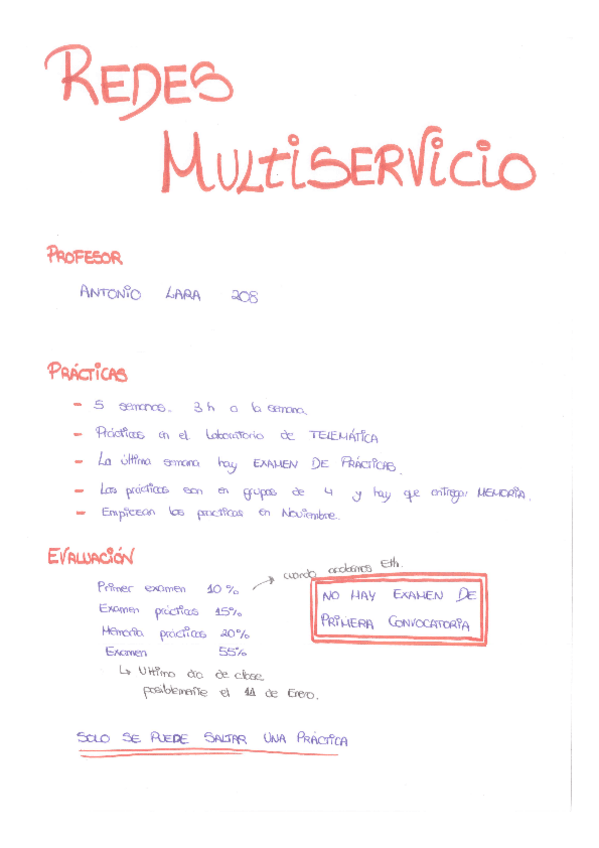 REDES
MULTISERVICIO
PROFESOR
ANTONIO LARA 208
PRÁCTICAS
- 5 semanas. 3 h a la semana
- Prácticas en el Laboratorio de TELEMÁTICA
- La última semana hay EXAMEN DE PRÁCTICAS.
- Las prácticas son en grupos de 4 y hay que entregar MEMORIA.
- Empiezan las practicas en Noviembre.
EVALUACIÓN
Primer examen 10% → cuando acabemos Eth.
Examen prácticas 15%
Memoria prácticas 20%
Examen 55%
↳ Ultimo dia de clase
posiblemente el 11 de Enero.
NO HAY EXAMEN DE
PRIMERA CONVOCATORIA
SOLO SE PUEDE SALTAR UNA PRÁCTICA